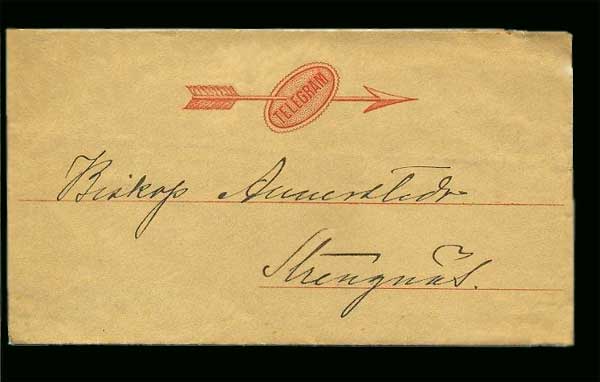 TELEGRAM
Biskop Annerstedt
Strengnäs.